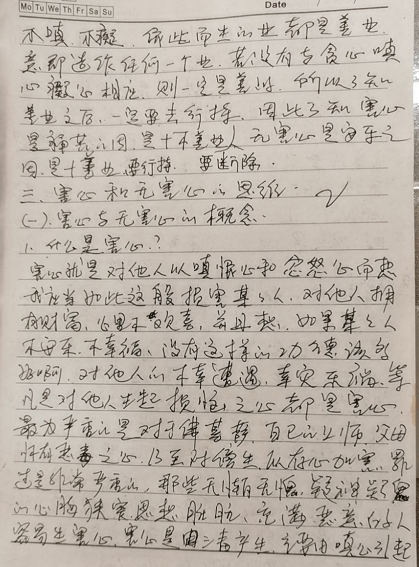 Mo Tu We Th Fr Sa Su
Date
不嗔、不癡，依此而生的业都是善业，
意即造作任何一个业，若没有与贪心嗔
心癡心相应，则一定是善业，所以了知
善业之后，一定要去行持，因此了知害心
是痛苦之因，是十不善业，无害心是安乐之
因，是十善业，要行持，要断除。
三、害心和无害心的思维
(一)、害心与无害心的概念
1. 什么是害心？
害心就是对他人以嗔恨心和忿怒心而想
我应当如此这般损害某人，对他人拥
有财富，心里不欢喜，并且想，如果某人
不安乐、不幸福、没有这样的功德该多
好啊，对他人的不幸遭遇，幸灾乐祸，等
凡是对他人生起损恼之心都是害心，
最为严重的是对于佛菩萨，自己的上师，父母
怀有恶毒之心，乃至对僧众以存心加害，罪
过是非常严重的，那些无惭无愧，
的心胸狭窄思想肮脏，充满恶意的人
容易生害心，害心是由三毒产生，主要由嗔心引起